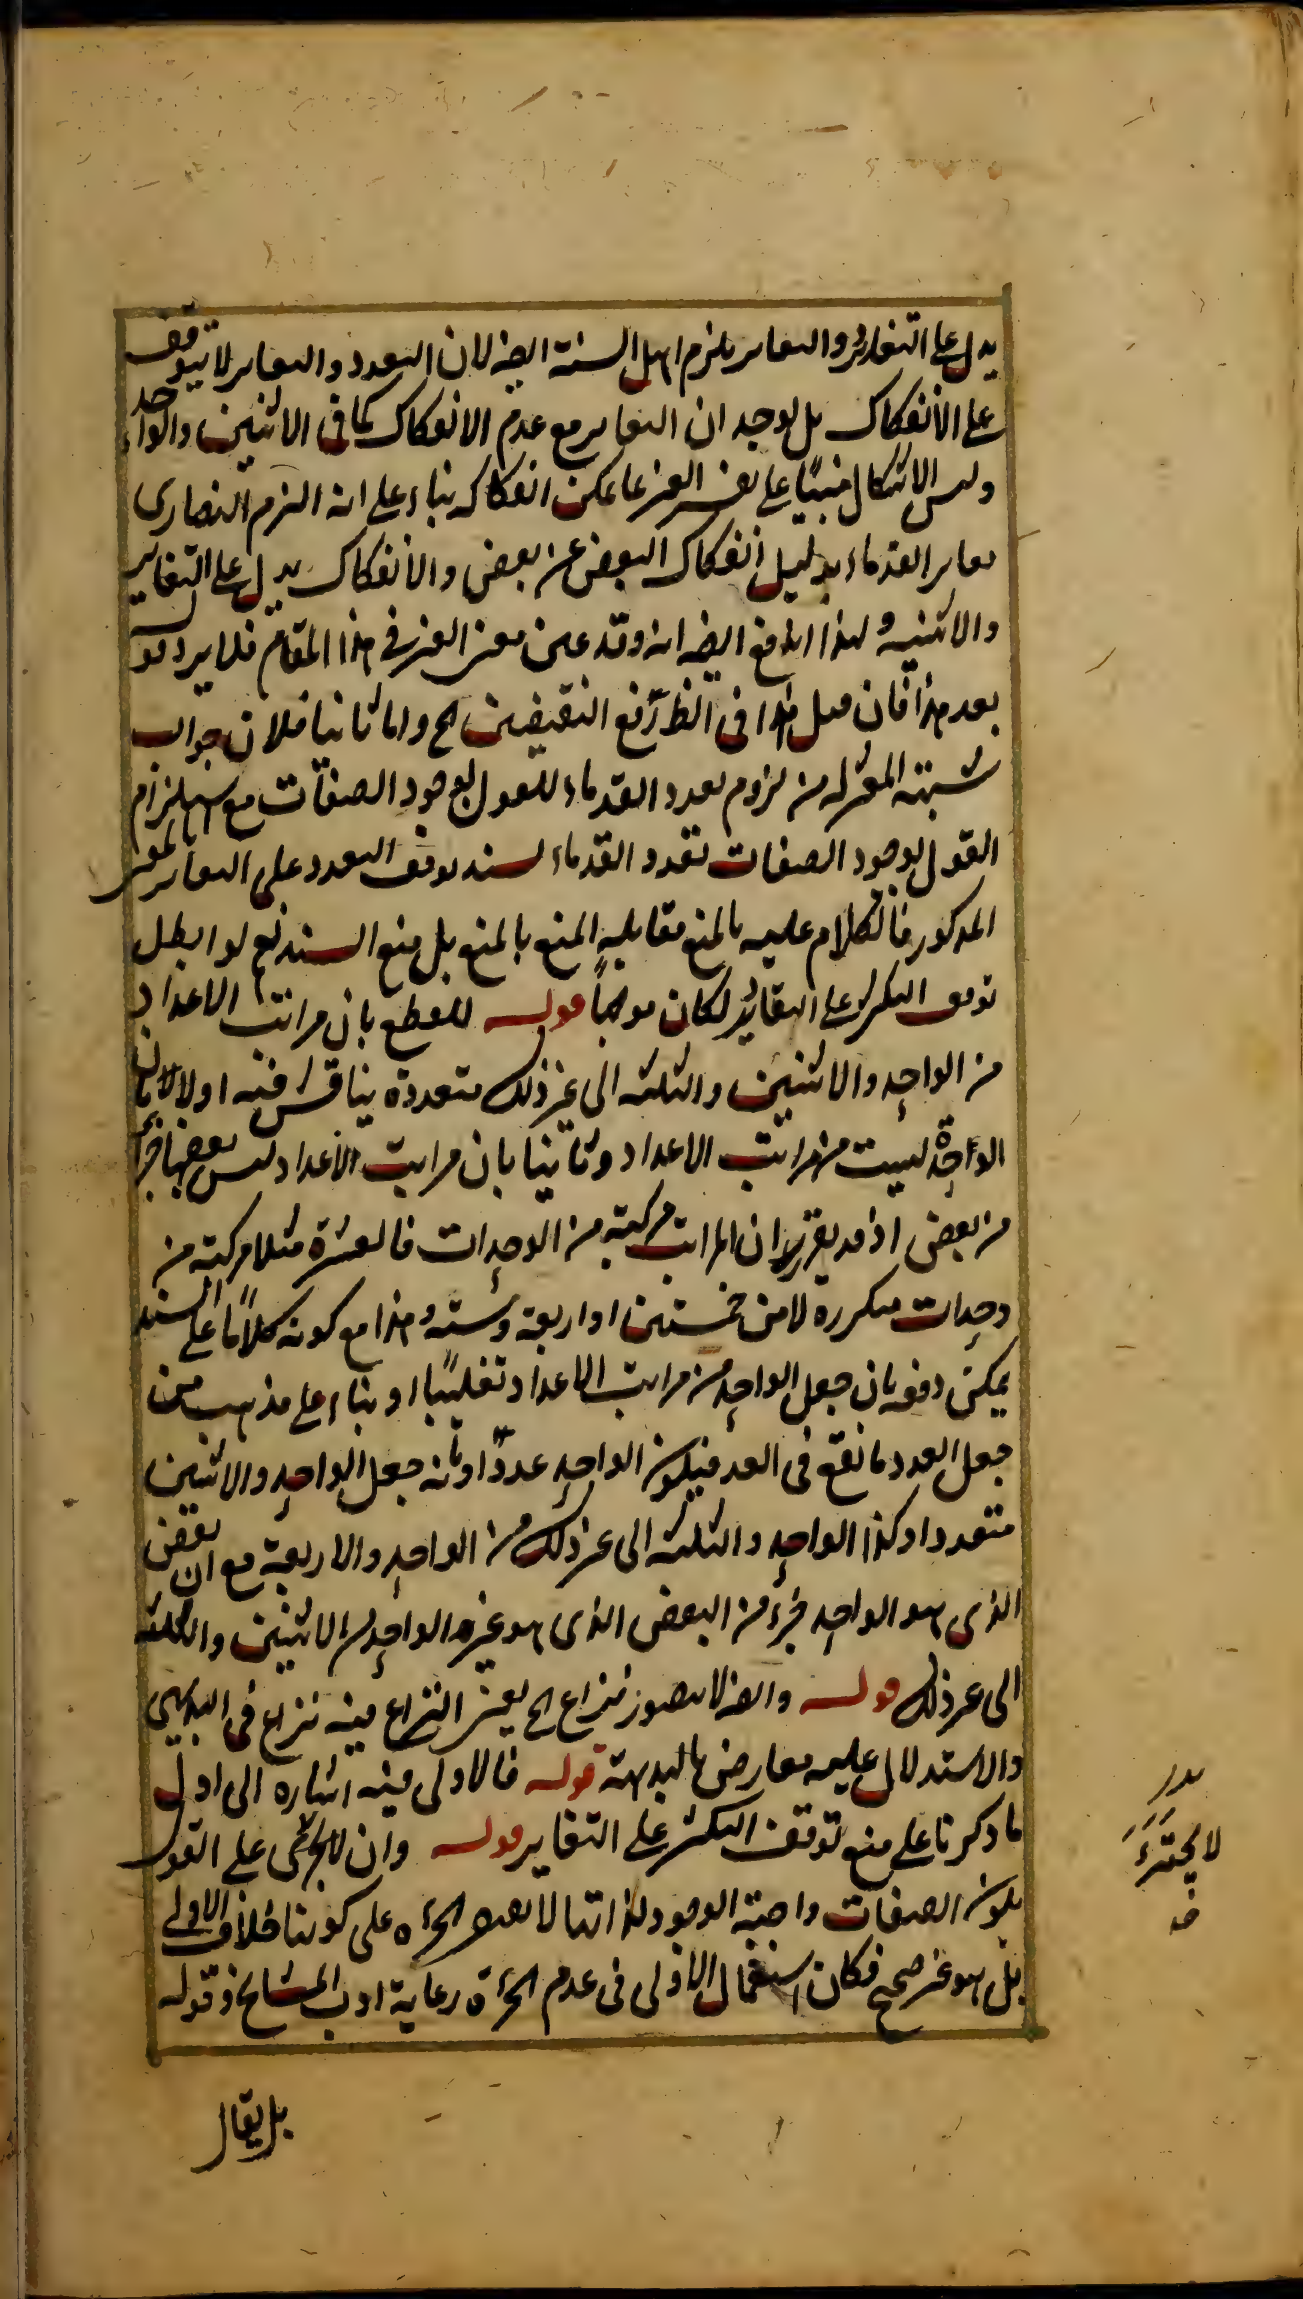 يدل على التغاير والتعاير يلزم اهل السنة ايضا لان التعدد والتعاير لا يتوقف
على الانفكاك بل يوجد ان التعاير مع عدم الانفكاك كما في الاثنين والواحد
وليس الاشكال مبنيًا على تفسير الغير بما يمكن انفكاكه بناء على انه التزم النصارى
تعاير القدماء بدليل انفكاك البعض عن بعض والانفكاك يدل على التغاير
والاثنينية ولهذا اندفع ايضا انه وقد عين معنى الغير في هذا المقام فلا يرد قوله
بعد هذا فان قيل هذا في الظ رفع النقيضين الخ واما ثانيا فلان جواب
شبهة المعتزلة من لزوم تعدد القدماء للقول بوجود الصفات مع استلزام
القول بوجود الصفات تعدد القدماء لسند توقف التعدد على التعاير بالمعنى
المذكور فالكلام عليه بالمنع مقابلة المنع بالمنع بل منع السند نعم لو ابطل
توقف التكثر على التغاير لكان موجها قوله للقطع بان مراتب الاعداد
من الواحد والاثنين والثلثة الى غير ذلك متعددة يناقش فيه اولا بان
الواحد ليست من مراتب الاعداد وثانيا بان مراتب الاعداد ليس بعضها جزأ
من بعض اذ قد يقرر ان المراتب مركبة من الوحدات فالعشرة مثلا مركبة من
وحدات متكررة لا من خمستين او اربعة وستة وهذا مع كونه كلامًا على السند
يمكن دفعه بان جعل الواحد من مراتب الاعداد تغليبًا او بناء على مذهب من
جعل العدد ما يقع في العد فيكون الواحد عددًا وبانه جعل الواحد والاثنين
متعددا وكذا الواحد والثلثة الى غير ذلك من الواحد والاربعة مع ان بعض
الذي هو الواحد جزء من البعض الذي هو غير الواحد من الاثنين والثلثة
الى غير ذلك قوله وايضا لا يتصور نزاع الخ يعنى النزاع فيه نزاع في البديهي
والاستدلال عليه معارض بالبديهة قوله فالاولى فيه اشارة الى اول
ما ذكرنا على منع توقف التكثر على التغاير قوله وان لا يجترئ على القول
بكون الصفات واجبة الوجود لذاتها لا يقتضي الجرأة على كونها خلاف الاولى
بل هو غير صحيح فكان استعمال الاولى في عدم الجرأة رعاية ادب المشايخ وقوله
بل يقال
لا يجترئ